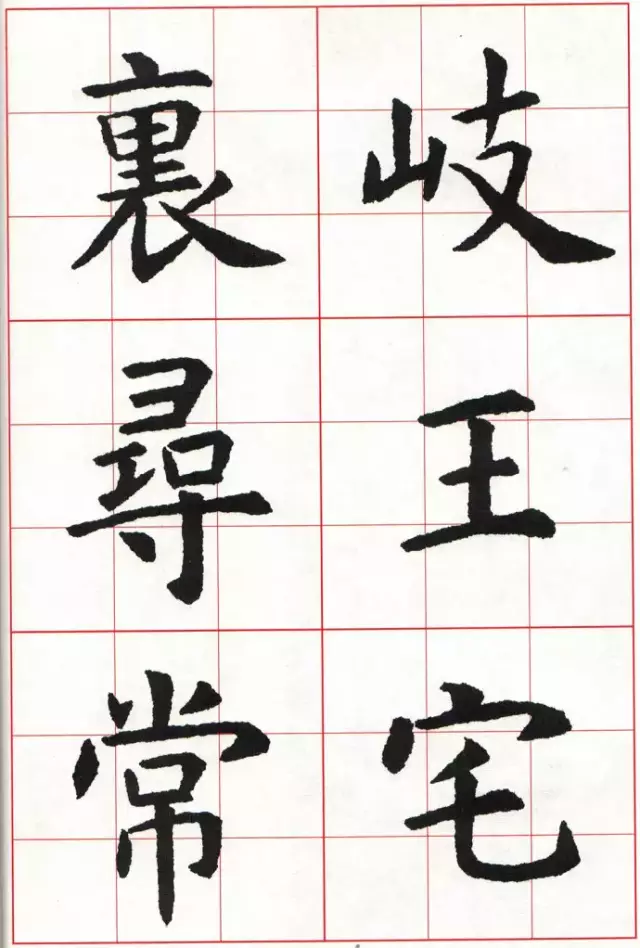 岐王宅
裏尋常